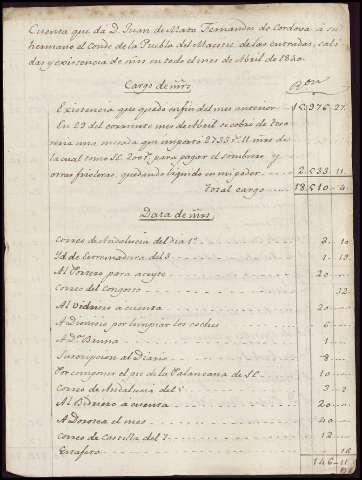 Cuenta que da D. Juan de Mata Fernandez de Cordova á su
hermano el Conde de la Puebla del Maestre de las entradas, sali
das y existencia de mrs en todo el mes de Abril de 1840.
Cargo de mrs
Ron
Existencia que quedó en fin del mes anterior 15.976..27.
En 29 del corriente mes de Abril se cobró de Teso
reria una mesada que importó 2733 r. 11 mrs de
la cual tomó SE. 200 r. para pagar el sombrero y
otras frioleras, quedando líquido en mi poder 2.533..11.
Total cargo 18.510..4.
Data de mrs
Correo de Andalucia del dia 1º 2..10
Yd de Extremadura del 3 1..12
Al Torrero para aceyte 20
Correo del Congosto 32
Al Vidriero á cuenta 20
A Dionisio por limpiar los coches 6
A Dª Bruna 1
Suscripcion al Diario 8
Por componer el pie de la Palancana de SE. 10
Correo de Andalucia del 5 3..2
Al Bidriero á cuenta 20
A Dorotea el mes 40
Correo de Castilla del 7 12
Estafeta 16
146..11